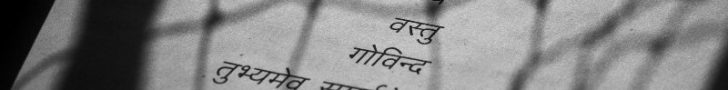 वस्तु
गोविन्द
तुभ्यमेव